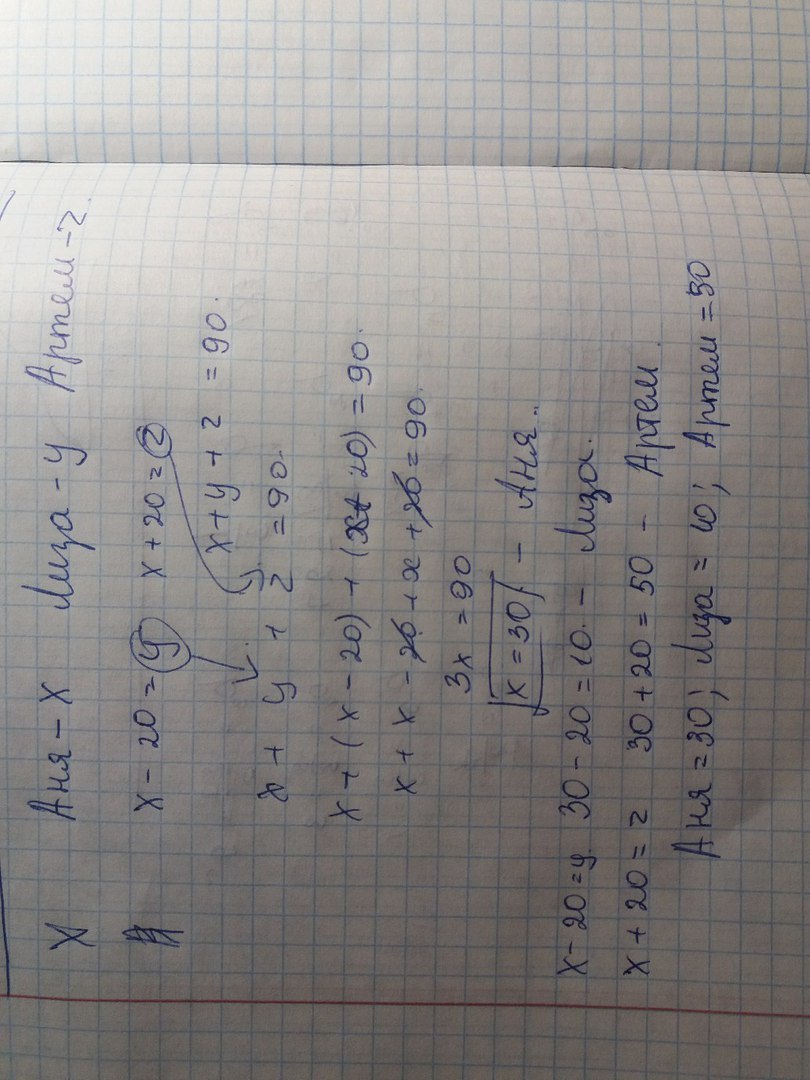 X Аня - X Лиза - y Артем - z.
X - 20 = y X + 20 = z
X + y + z = 90.
x + y + z = 90.
X + (X - 20) + (x + 20) = 90.
X + X - 20 + x + 20 = 90.
3X = 90
X = 30 - Аня..
X - 20 = y. 30 - 20 = 10. - Лиза.
X + 20 = z 30 + 20 = 50 - Артем.
Аня = 30; Лиза = 10; Артем = 50